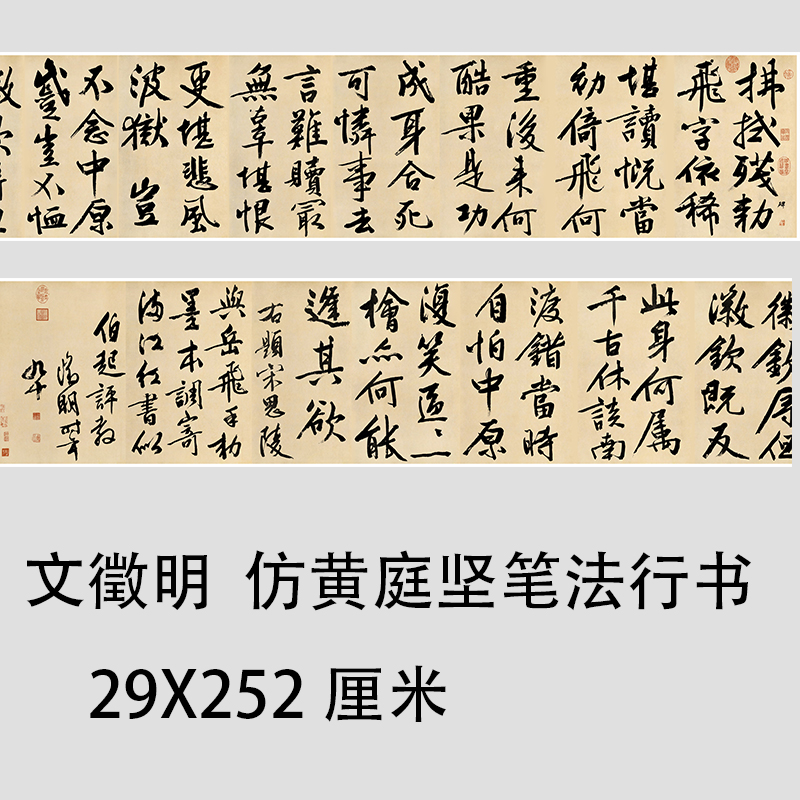 拂拭殘勑
碑
飛字依稀
堪讀慨當
初倚飛何
重後来何
酷果是功
成身合死
可憐事去
言難贖㝡
無辜堪恨
更堪悲風
波獄豈
不念中原
蹙豈不恤
徽欽辱但
徽欽既反
此身何属
千古休談南
渡錯當時
自怕中原
復笑區〻
檜亦何能
逢其欲
右題宋思陵
與岳飛手勑
墨本調寄
满江红書似
伯起評教
徵明時年
九十
文徵明 仿黄庭坚笔法行书
29X252 厘米